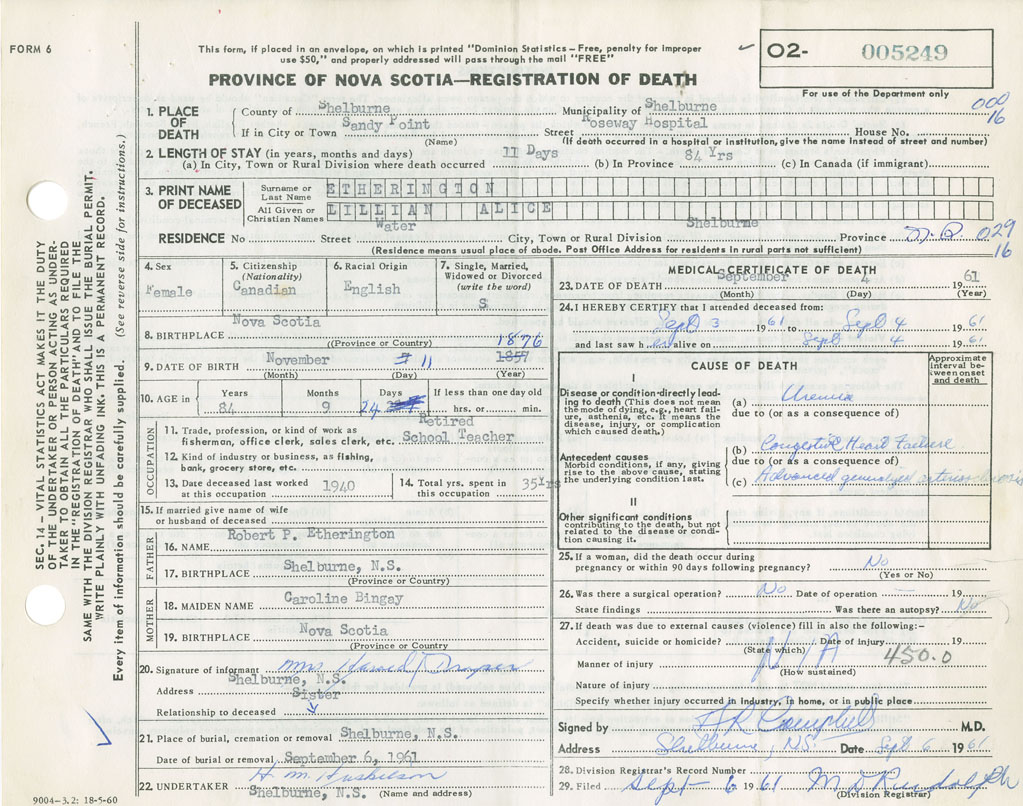 FORM 6
This form, if placed in an envelope, on which is printed "Dominion Statistics – Free, penalty for improper
use $50," and properly addressed will pass through the mail "FREE"
PROVINCE OF NOVA SCOTIA—REGISTRATION OF DEATH
O2- 005249
For use of the Department only
000
16
1. PLACE OF DEATH
County of Shelburne Municipality of Shelburne
If in City or Town Sandy Point Street Roseway Hospital House No.
(Name) (If death occurred in a hospital or institution, give the name instead of street and number)
2. LENGTH OF STAY (in years, months and days)
(a) In City, Town or Rural Division where death occurred 11 Days (b) In Province 84 Yrs (c) In Canada (if immigrant)
3. PRINT NAME OF DECEASED
Surname or Last Name ETHERINGTON
All Given or Christian Names LILLIAN ALICE
RESIDENCE No Street Water City, Town or Rural Division Shelburne Province N.S. 029
16
(Residence means usual place of abode. Post Office Address for residents in rural parts not sufficient)
4. Sex
Female
5. Citizenship (Nationality)
Canadian
6. Racial Origin
English
7. Single, Married, Widowed or Divorced (write the word)
S
8. BIRTHPLACE Nova Scotia
(Province or Country)
9. DATE OF BIRTH November 11 1857 1876
(Month) (Day) (Year)
10. AGE in Years Months Days If less than one day old
84 9 24 hrs. or min.
OCCUPATION
11. Trade, profession, or kind of work as
fisherman, office clerk, sales clerk, etc. Retired School Teacher
12. Kind of industry or business, as fishing,
bank, grocery store, etc.
13. Date deceased last worked
at this occupation 1940
14. Total yrs. spent in
this occupation 35Yrs
15. If married give name of wife
or husband of deceased
FATHER
16. NAME Robert P. Etherington
17. BIRTHPLACE Shelburne, N.S.
(Province or Country)
MOTHER
18. MAIDEN NAME Caroline Bingay
19. BIRTHPLACE Nova Scotia
(Province or Country
20. Signature of informant Mrs Harold
Address Shelburne, N.S.
Relationship to deceased Sister
21. Place of burial, cremation or removal Shelburne, N.S.
Date of burial or removal September 6, 1961
22. UNDERTAKER H. M. Shelburne, N.S.
(Name and address)
9004-3.2: 18-5-60
MEDICAL CERTIFICATE OF DEATH
23. DATE OF DEATH September 4 1961
(Month) (Day) (Year)
24. I HEREBY CERTIFY that I attended deceased from:
Sept 3 1961 to Sept 4 1961
and last saw her alive on Sept 4 1961
CAUSE OF DEATH
Approximate interval between onset and death
I
Disease or condition directly leading to death (This does not mean the mode of dying, e.g., heart failure, asthenia, etc. It means the disease, injury, or complication which caused death.)
(a) Uremia
due to (or as a consequence of)
Antecedent causes
Morbid conditions, if any, giving rise to the above cause, stating the underlying condition last.
(b) Congestive Heart Failure
due to (or as a consequence of)
(c) Advanced generalized arteriosclerosis
II
Other significant conditions
contributing to the death, but not related to the disease or condition causing it.
25. If a woman, did the death occur during
pregnancy or within 90 days following pregnancy? No
(Yes or No)
26. Was there a surgical operation? No Date of operation — 19
State findings Was there an autopsy? No
27. If death was due to external causes (violence) fill in also the following:–
Accident, suicide or homicide? Date of injury 19
(State which)
N/A
450.0
Manner of injury
(How sustained)
Nature of injury
Specify whether injury occurred in industry, in home, or in public place
Signed by H R Campbell M.D.
Address Shelburne, NS. Date Sept 6 1961
28. Division Registrar's Record Number
29. Filed Sept 6 1961 M D
(Division Registrar)
SEC. 14 – VITAL STATISTICS ACT MAKES IT THE DUTY
OF THE UNDERTAKER OR PERSON ACTING AS UNDER-
TAKER TO OBTAIN ALL THE PARTICULARS REQUIRED
IN THE "REGISTRATION OF DEATH" AND TO FILE THE
SAME WITH THE DIVISION REGISTRAR WHO SHALL ISSUE THE BURIAL PERMIT.
WRITE PLAINLY WITH UNFADING INK. THIS IS A PERMANENT RECORD.
Every item of information should be carefully supplied. (See reverse side for instructions.)